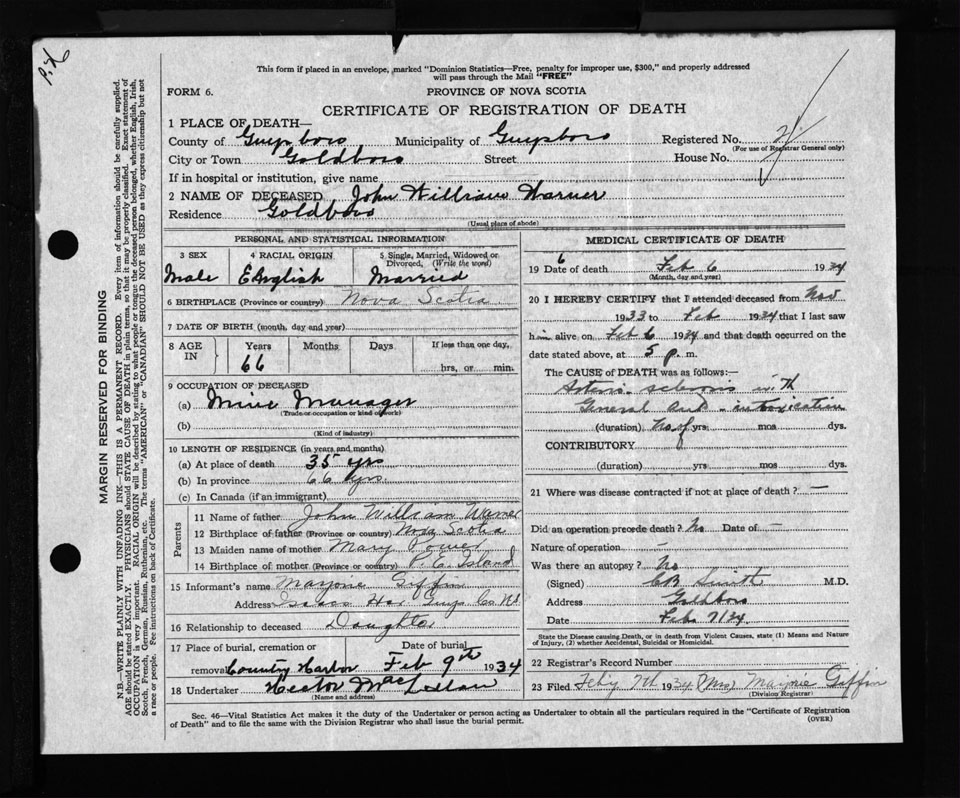 P.X
This form if placed in an envelope, marked "Dominion Statistics—Free, penalty for improper use, $300," and properly addressed
will pass through the Mail "FREE"
FORM 6.
PROVINCE OF NOVA SCOTIA
CERTIFICATE OF REGISTRATION OF DEATH
1 PLACE OF DEATH—
County of Guysboro Municipality of Guysboro Registered No.
(For use of Registrar General only)
City or Town Goldboro Street House No.
If in hospital or institution, give name
2 NAME OF DECEASED John William Warner
Residence Goldboro
(Usual place of abode)
PERSONAL AND STATISTICAL INFORMATION
3 SEX 4 RACIAL ORIGIN 5 Single, Married, Widowed or Divorced, (Write the word)
Male English Married
6 BIRTHPLACE (Province or country) Nova Scotia
7 DATE OF BIRTH (month, day and year)
8 AGE IN Years Months Days If less than one day,
66 hrs, or min.
9 OCCUPATION OF DECEASED
(a) Mine Manager
(Trade or occupation or kind of work)
(b)
(Kind of industry)
10 LENGTH OF RESIDENCE (in years and months)
(a) At place of death 35 yrs
(b) In province 66 yrs.
(c) In Canada (if an immigrant)
Parents
11 Name of father John William Warner
12 Birthplace of father (Province or country) Nova Scotia
13 Maiden name of mother Mary Power
14 Birthplace of mother (Province or country) P. E. Island
15 Informant's name Marjorie Giffin
Address Isaacs Har Guys Co NS
16 Relationship to deceased Daughter
17 Place of burial, cremation or Date of burial
removal Country Harbor Feb 9th 1934
18 Undertaker Hector MacLellan
(Name and address)
MEDICAL CERTIFICATE OF DEATH
6
19 Date of death Feb 6 1934
(Month, day and year)
20 I HEREBY CERTIFY that I attended deceased from Nov
1933 to Feb 1934 that I last saw
him alive on Feb 6 1934 and that death occurred on
date stated above, at 5 p. m.
The CAUSE of DEATH was as follows:—
Arterio sclerosis with
General intoxication
(duration) No of yrs. mos dys.
CONTRIBUTORY
(duration) yrs mos dys.
21 Where was disease contracted if not at place of death? —
Did an operation precede death? No Date of —
Nature of operation —
Was there an autopsy? No
(Signed) CB Smith M.D.
Address Goldboro
Date Feb 7/34
State the Disease causing Death, or in death from Violent Causes, state (1) Means and Nature
of Injury, (2) whether Accidental, Suicidal or Homicidal.
22 Registrar's Record Number
23 Filed Feby 7th 1934 (Mrs) Marjorie Giffin
(Division Registrar)
Sec. 46—Vital Statistics Act makes it the duty of the Undertaker or person acting as Undertaker to obtain all the particulars required in the "Certificate of Registration
of Death" and to file the same with the Division Registrar who shall issue the burial permit.
(OVER)
MARGIN RESERVED FOR BINDING
N.B.—WRITE PLAINLY WITH UNFADING INK—THIS IS A PERMANENT RECORD. Every item of information should be carefully supplied.
AGE should be stated EXACTLY. PHYSICIANS should STATE CAUSE OF DEATH in plain terms, so that it may be properly classified. Exact statement of
OCCUPATION is very important. RACIAL ORIGIN will be described by stating to what people or tongue the deceased person belonged, whether English, Irish,
Scotch, French, German, Russian, Ruthenian, etc. The terms "AMERICAN" or "CANADIAN" SHOULD NOT BE USED as they express citizenship but not
a race or people. See instructions on back of Certificate.